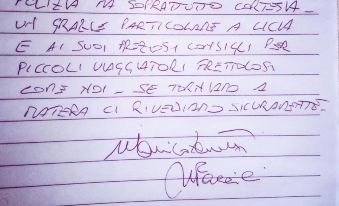 PULIZIA MA SOPRATTUTTO CORTESIA -
UN GRAZIE PARTICOLARE A LICIA
E AI SUOI PREZIOSI CONSIGLI PER
PICCOLI VIAGGIATORI FRETTOLOSI
COME NOI - SE TORNIAMO A
MATERA CI RIVEDIAMO SICURAMENTE -